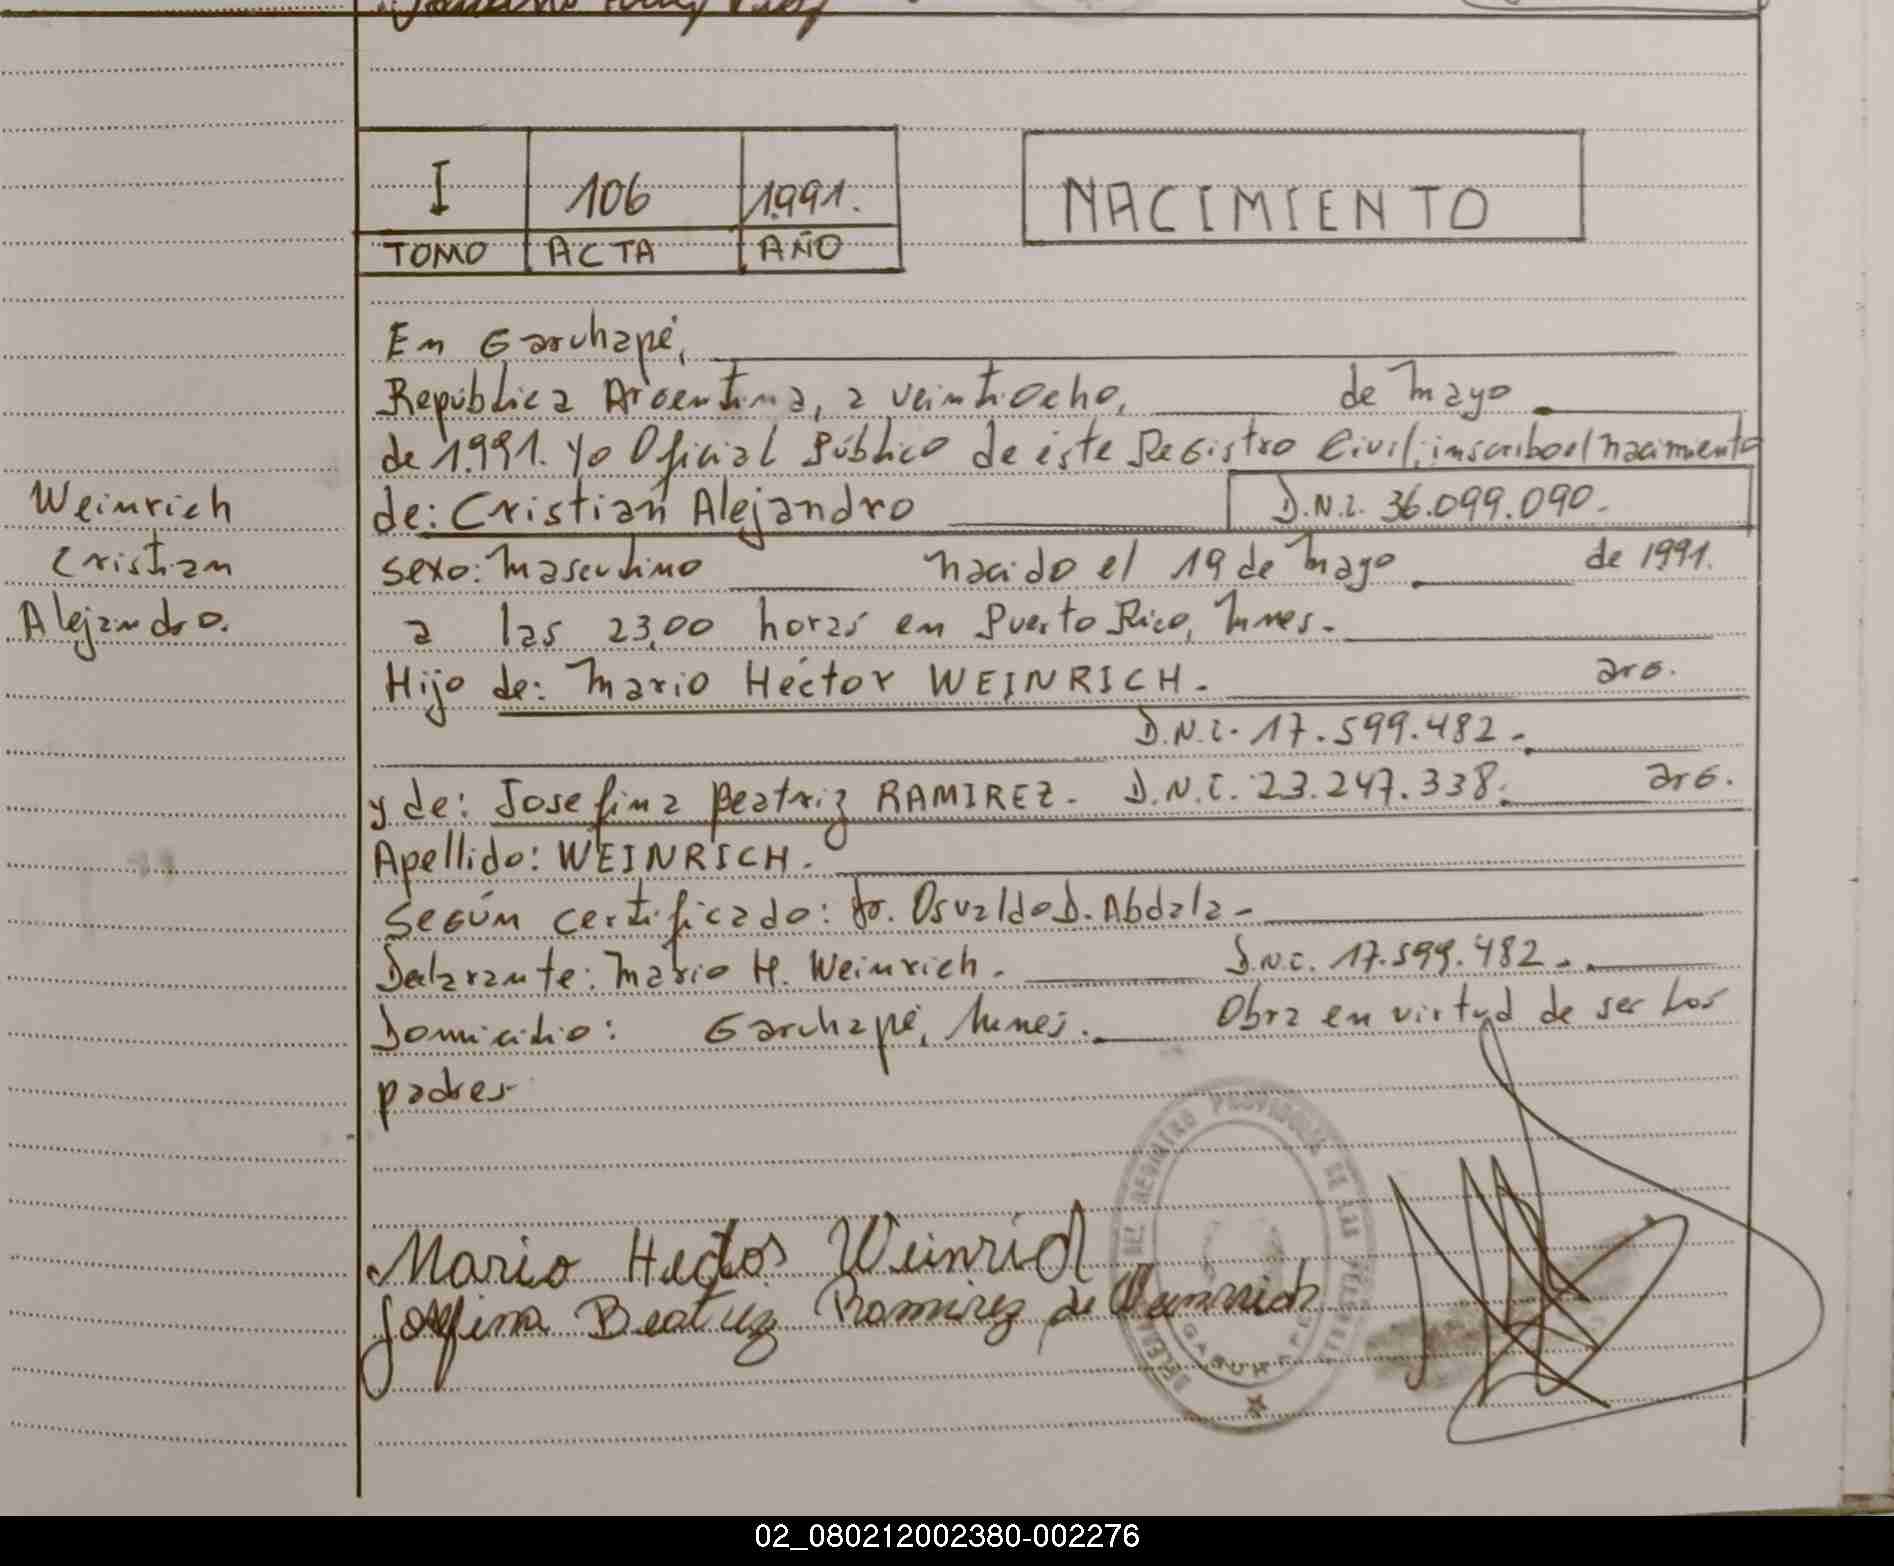 I 106 1.991.
TOMO ACTA AÑO
NACIMIENTO
En Garuhapé,
República Argentina, a veintiocho, de Mayo
de 1.991. Yo Oficial Público de éste Registro Civil, inscribo el nacimiento
Weinrich
Cristian
Alejandro.
de: Cristian Alejandro D.N.I. 36.099.090.
Sexo: Masculino nacido el 19 de Mayo de 1991.
a las 23,00 horas en Puerto Rico, Mnes.
Hijo de: Mario Héctor WEINRICH. arg.
D.N.I. 17.599.482.
y de: Josefina Beatriz RAMIREZ. D.N.I. 23.247.338. arg.
Apellido: WEINRICH.
Según certificado: Dr. Osvaldo D. Abdala
Declarante: Mario H. Weinrich. D.N.I. 17.599.482.
Domicilio: Garuhapé, Mnes. Obra en virtud de ser los
padres
Mario Hector Weinrich
Josefina Beatriz Ramirez de Weinrich
DEL REGISTRO PROVINCIAL DE LAS PERSONAS
GARUHAPE
02_080212002380-002276